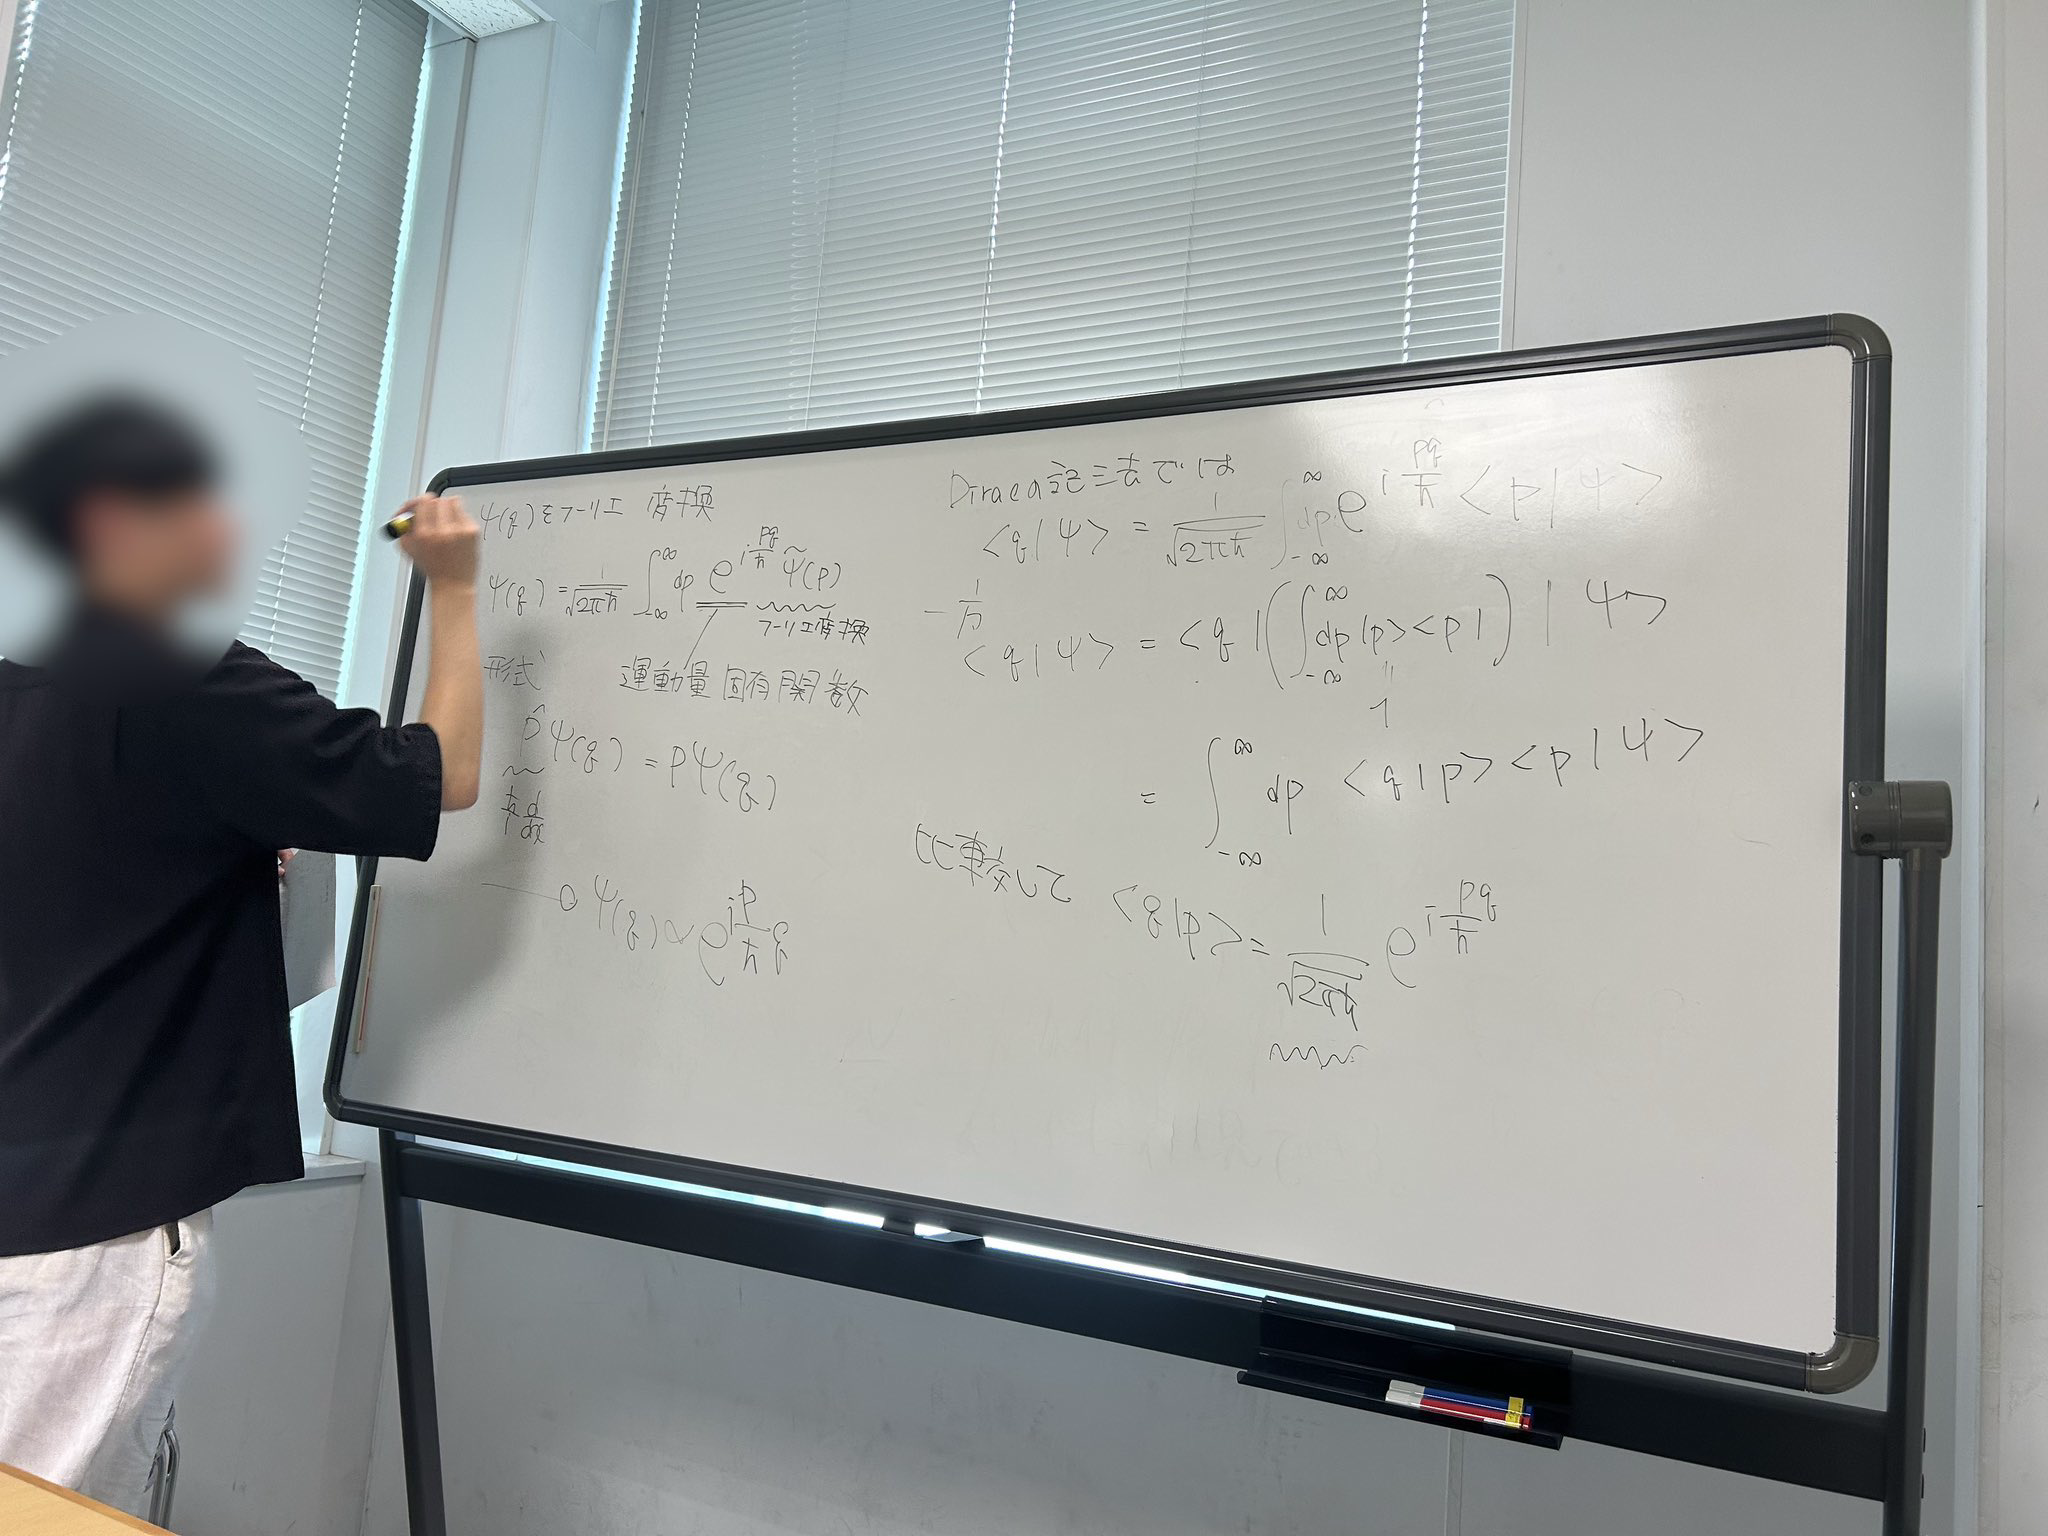 ψ(q)をフーリエ変換
ψ(q) = 1/√2πħ ∫_{-∞}^{∞} dp e^{i pq/ħ} ψ̃(p)
フーリエ変換
形式
運動量固有関数
p̂ψ(q) = pψ(q)
d/dx
ψ(q) ∝ e^{i p/ħ q}
Diracの記法では
<q|ψ> = 1/√2πħ ∫_{-∞}^{∞} dp e^{i pq/ħ} <p|ψ>
<q|ψ> = <q|(∫_{-∞}^{∞} dp|p><p|)|ψ>
=
1
= ∫_{-∞}^{∞} dp <q|p><p|ψ>
比較して <q|p> = 1/√2πħ e^{i pq/ħ}